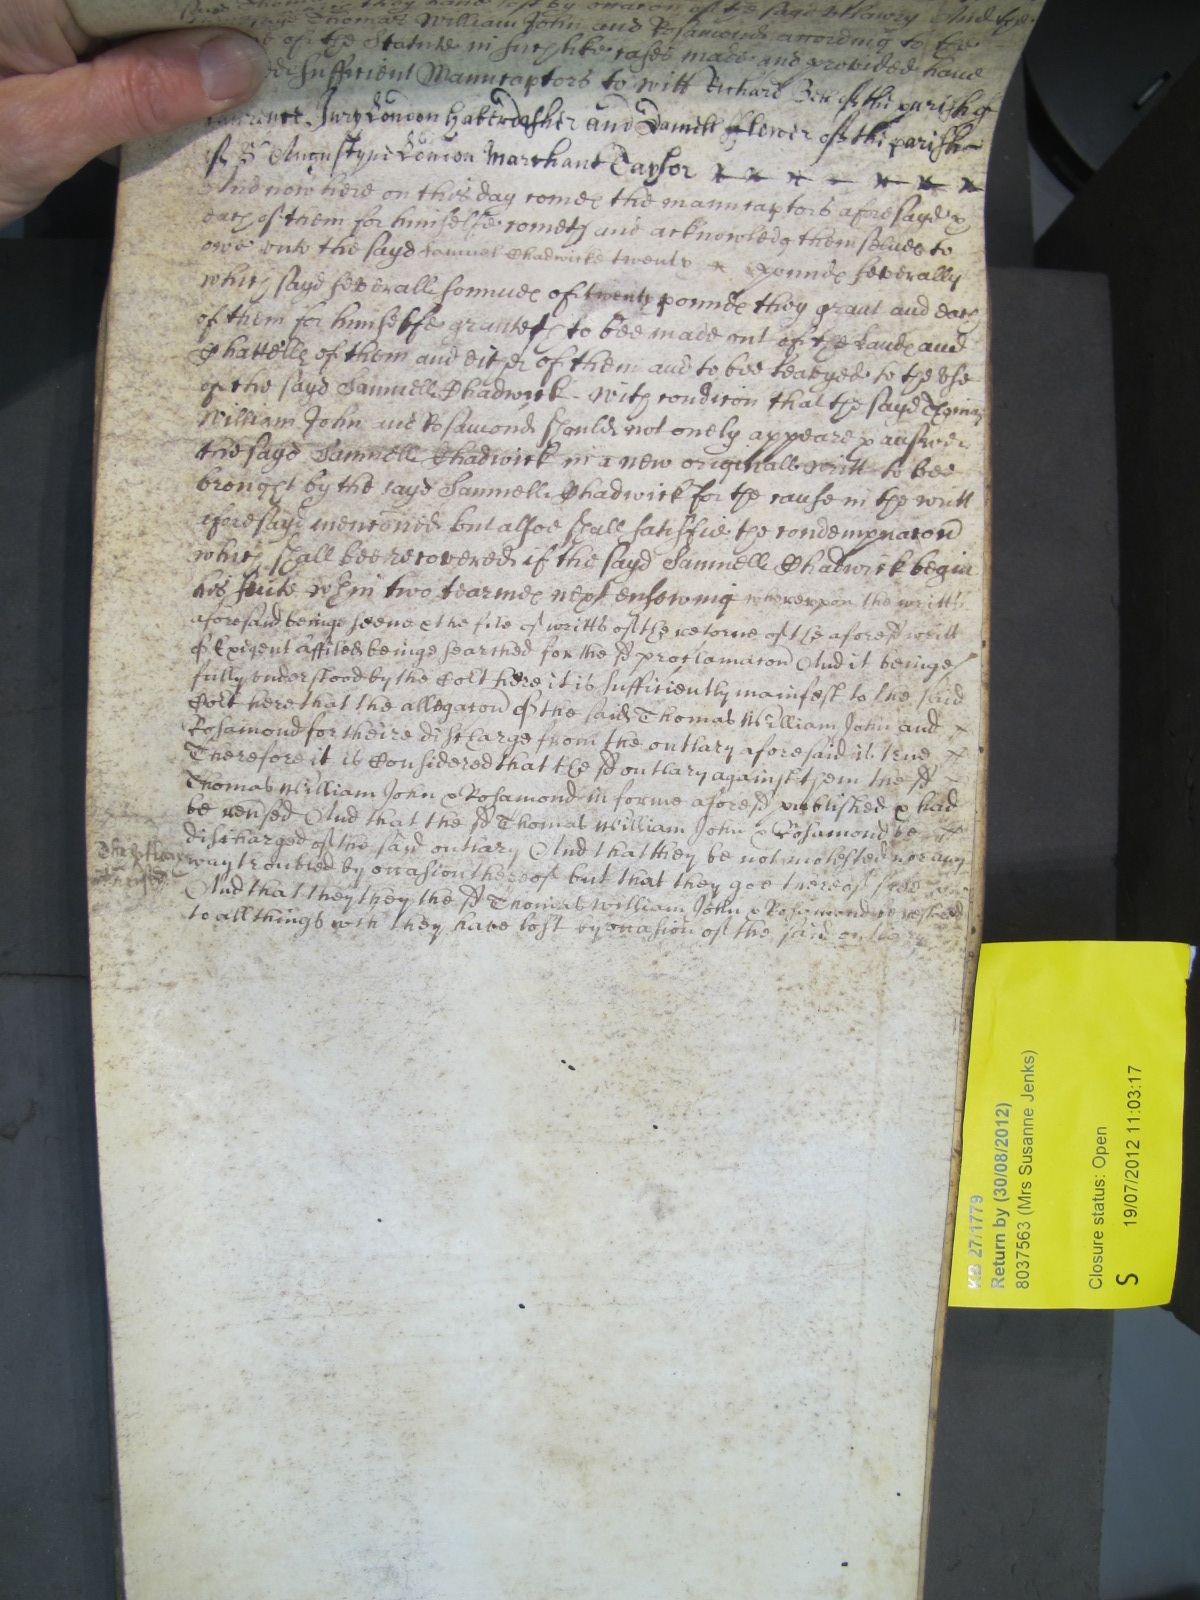 they have lost by occasion of the sayd utlawry And the
sayd Thomas William John and Rosamond according to the
of the Statute in such like cases made and provided have
sufficient Manucaptors to witt Richard of the parish of
Laurence Jury London Haberdasher and Daniell fflower of the parish
of St Augustyne London Marchant Taylor
And now here on this day comes the manucaptors aforesayd &
each of them for himselfe cometh and acknowledg themselues to
owe unto the sayd Samuel Chadwicke twenty pounds severally
which sayd severall somes of twenty pounds they grant and each
of them for himselfe granteth to bee made out of the Lands and
Chattells of them and either of them and to bee leavyed to the use
of the sayd Samuell Chadwick with condicon that the sayd Thomas
William John and Rosamond should not onely appeare & answer
the sayd Samuell Chadwick in a new originall writt to bee
brought by the sayd Samuell Chadwick for the cause in the writt
aforesayd menconed but alsoe shall satisfie the condempnacon
which shall bee recovered if the sayd Samuell Chadwick begin
his suite wthin two tearmes next ensewing whereupon the writts
aforesaid beinge seene & the file of writts of the retorne of the aforesd writt
of Exigent affiled beinge searched for the sd proclamacon And it beinge
fully understood by the Cort here it is sufficiently manifest to the said
Cort here that the allegacon of the said Thomas William John and
Rosamond for theire discharge from the outlary aforesaid is true
Therefore it is Considered that the sd outlary against them the sd
Thomas William John & Rosamond in forme aforesd published & had
be reversed And that the sd Thomas William John & Rosamond be
discharged of the said outlary And that they be not molested nor any
way troubled by occasion thereof but that they goe thereof
And that they they the sd Thomas William John & Rosamond be restored
to all things wch they have lost by occasion of the said outlary
The outlary
reversed
KB 27/1779
Return by (30/08/2012)
8037563 (Mrs Susanne Jenks)
Closure status: Open
S 19/07/2012 11:03:17